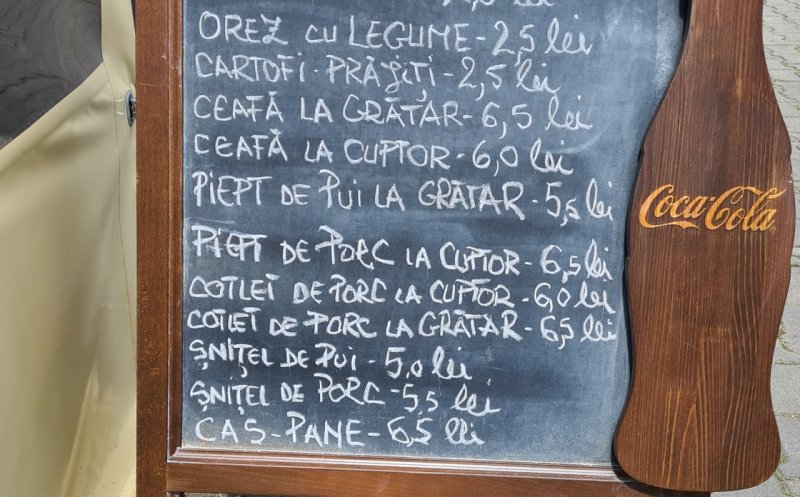 OREZ CU LEGUME - 2,5 lei
CARTOFI PRĂJIȚI - 2,5 lei
CEAFĂ LA GRĂTAR - 6,5 lei
CEAFĂ LA CUPTOR - 6,0 lei
PIEPT DE PUI LA GRĂTAR - 5,5 lei
PIEPT DE PORC LA CUPTOR - 6,5 lei
COTLET DE PORC LA CUPTOR - 6,0 lei
COTLET DE PORC LA GRĂTAR - 6,5 lei
ȘNIȚEL DE PUI - 5,0 lei
ȘNIȚEL DE PORC - 5,5 lei
CAS - PANE - 6,5 lei
Coca-Cola